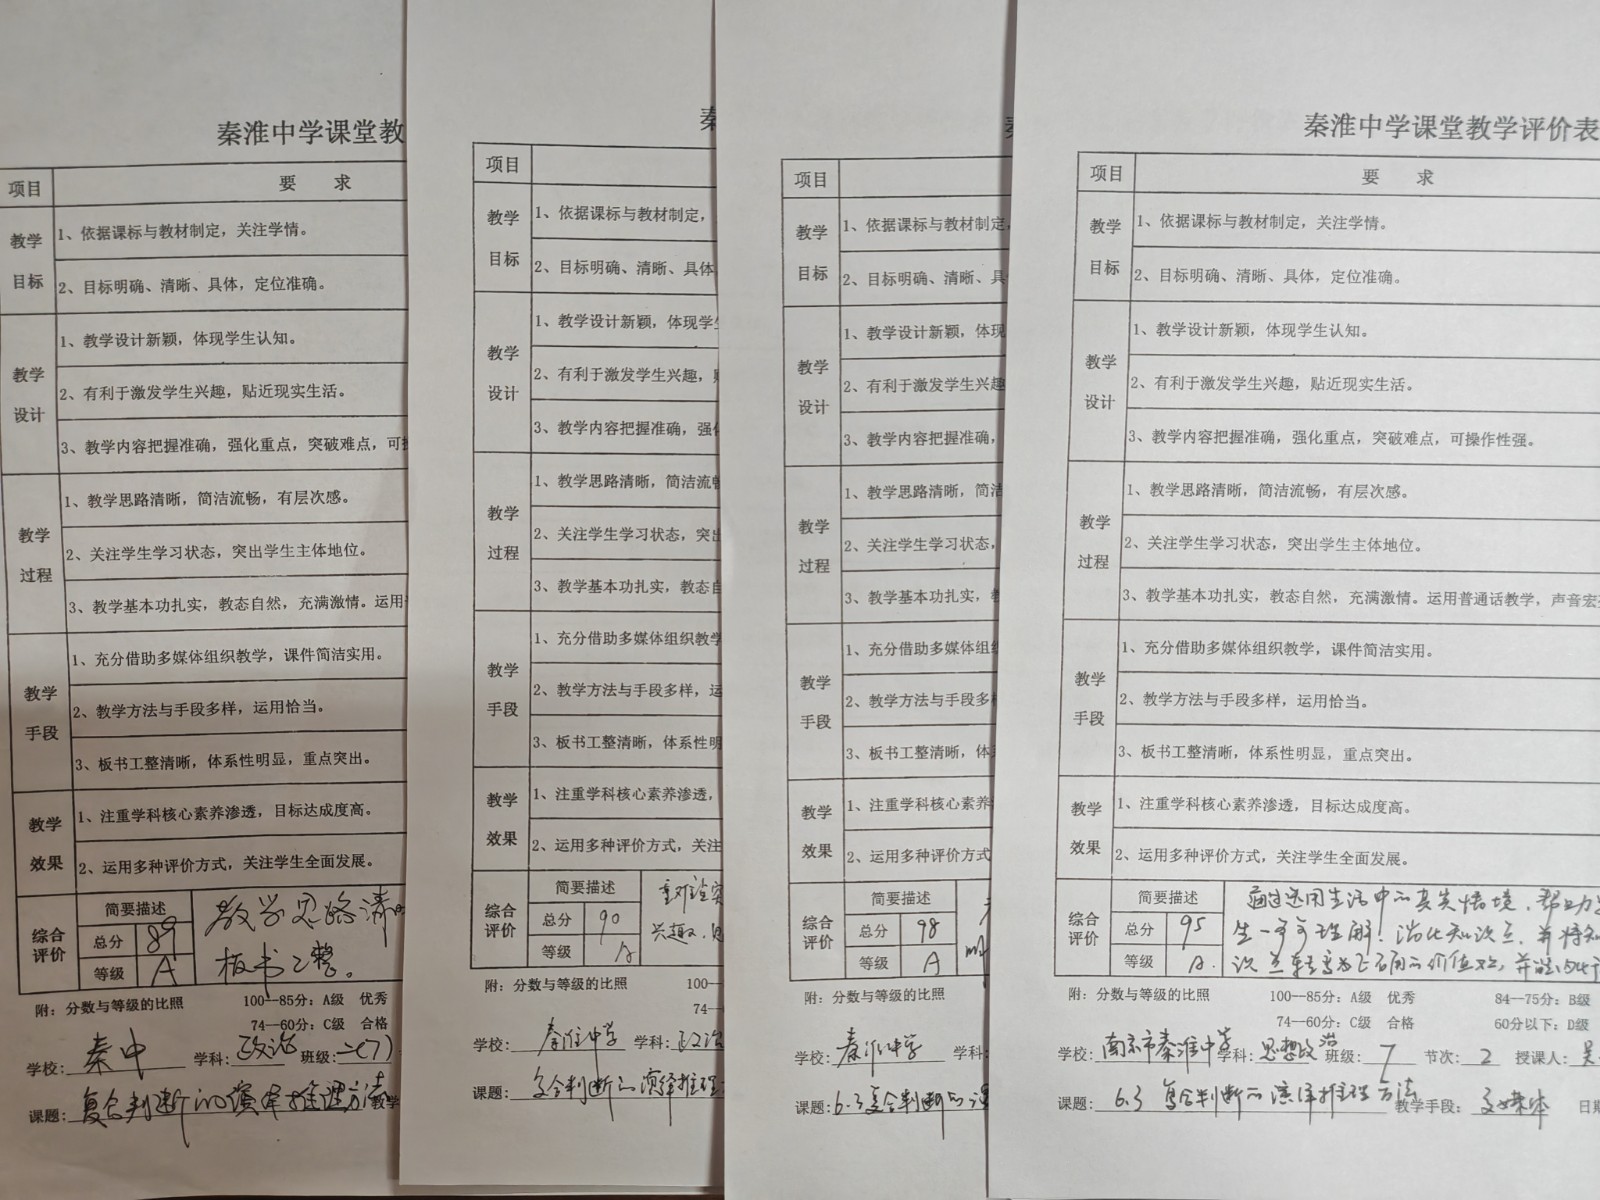 秦淮中学课堂教
项目
要 求
教学
目标
1、依据课标与教材制定，关注学情。
2、目标明确、清晰、具体，定位准确。
教学
设计
1、教学设计新颖，体现学生认知。
2、有利于激发学生兴趣，贴近现实生活。
3、教学内容把握准确，强化重点，突破难点，可
教学
过程
1、教学思路清晰，简洁流畅，有层次感。
2、关注学生学习状态，突出学生主体地位。
3、教学基本功扎实，教态自然，充满激情。运用
教学
手段
1、充分借助多媒体组织教学，课件简洁实用。
2、教学方法与手段多样，运用恰当。
3、板书工整清晰，体系性明显，重点突出。
教学
效果
1、注重学科核心素养渗透，目标达成度高。
2、运用多种评价方式，关注学生全面发展。
综合
评价
简要描述
总分 89
等级 A
教学思路清
板书工整。
附：分数与等级的比照 100--85分：A级 优秀
74--60分：C级 合格
学校：秦中 学科：政治 班级：二(7)
课题：复合判断的演绎推理方法 教学
项目
教学
目标
1、依据课标与教材制定，
2、目标明确、清晰、具体
教学
设计
1、教学设计新颖，体现学
2、有利于激发学生兴趣，
3、教学内容把握准确，强
教学
过程
1、教学思路清晰，简洁流
2、关注学生学习状态，突
3、教学基本功扎实，教态
教学
手段
1、充分借助多媒体组织教学
2、教学方法与手段多样，运
3、板书工整清晰，体系性明
教学
效果
1、注重学科核心素养渗透，
2、运用多种评价方式，关注
综合
评价
简要描述
总分 90
等级 A
兴趣
附：分数与等级的比照 100--
74--
学校：秦淮中学 学科：政治
课题：复合判断的演绎推理
项目
教学
目标
1、依据课标与教材制定，
2、目标明确、清晰、具
教学
设计
1、教学设计新颖，体现
2、有利于激发学生兴趣
3、教学内容把握准确，
教学
过程
1、教学思路清晰，简洁
2、关注学生学习状态，
3、教学基本功扎实，
教学
手段
1、充分借助多媒体组
2、教学方法与手段多
3、板书工整清晰，体
教学
效果
1、注重学科核心素养
2、运用多种评价方式
综合
评价
简要描述
总分 98
等级 A
附：分数与等级的比照
学校：秦淮中学 学科
课题：6.3复合判断的演
秦淮中学课堂教学评价表
项目
要 求
教学
目标
1、依据课标与教材制定，关注学情。
2、目标明确、清晰、具体，定位准确。
教学
设计
1、教学设计新颖，体现学生认知。
2、有利于激发学生兴趣，贴近现实生活。
3、教学内容把握准确，强化重点，突破难点，可操作性强。
教学
过程
1、教学思路清晰，简洁流畅，有层次感。
2、关注学生学习状态，突出学生主体地位。
3、教学基本功扎实，教态自然，充满激情。运用普通话教学，声音宏
教学
手段
1、充分借助多媒体组织教学，课件简洁实用。
2、教学方法与手段多样，运用恰当。
3、板书工整清晰，体系性明显，重点突出。
教学
效果
1、注重学科核心素养渗透，目标达成度高。
2、运用多种评价方式，关注学生全面发展。
综合
评价
简要描述
总分 95
等级 A.
通过选用生活中的真实情境，帮助
生理解，消化知识点，并将知
识点转为正确的价值观，并
附：分数与等级的比照 100--85分：A级 优秀 84--75分：B级
74--60分：C级 合格 60分以下：D级
学校：南京市秦淮中学 学科：思想政治 班级：7 节次：2 授课人：吴
课题：6.3 复合判断的演绎推理方法 教学手段：多媒体 日期